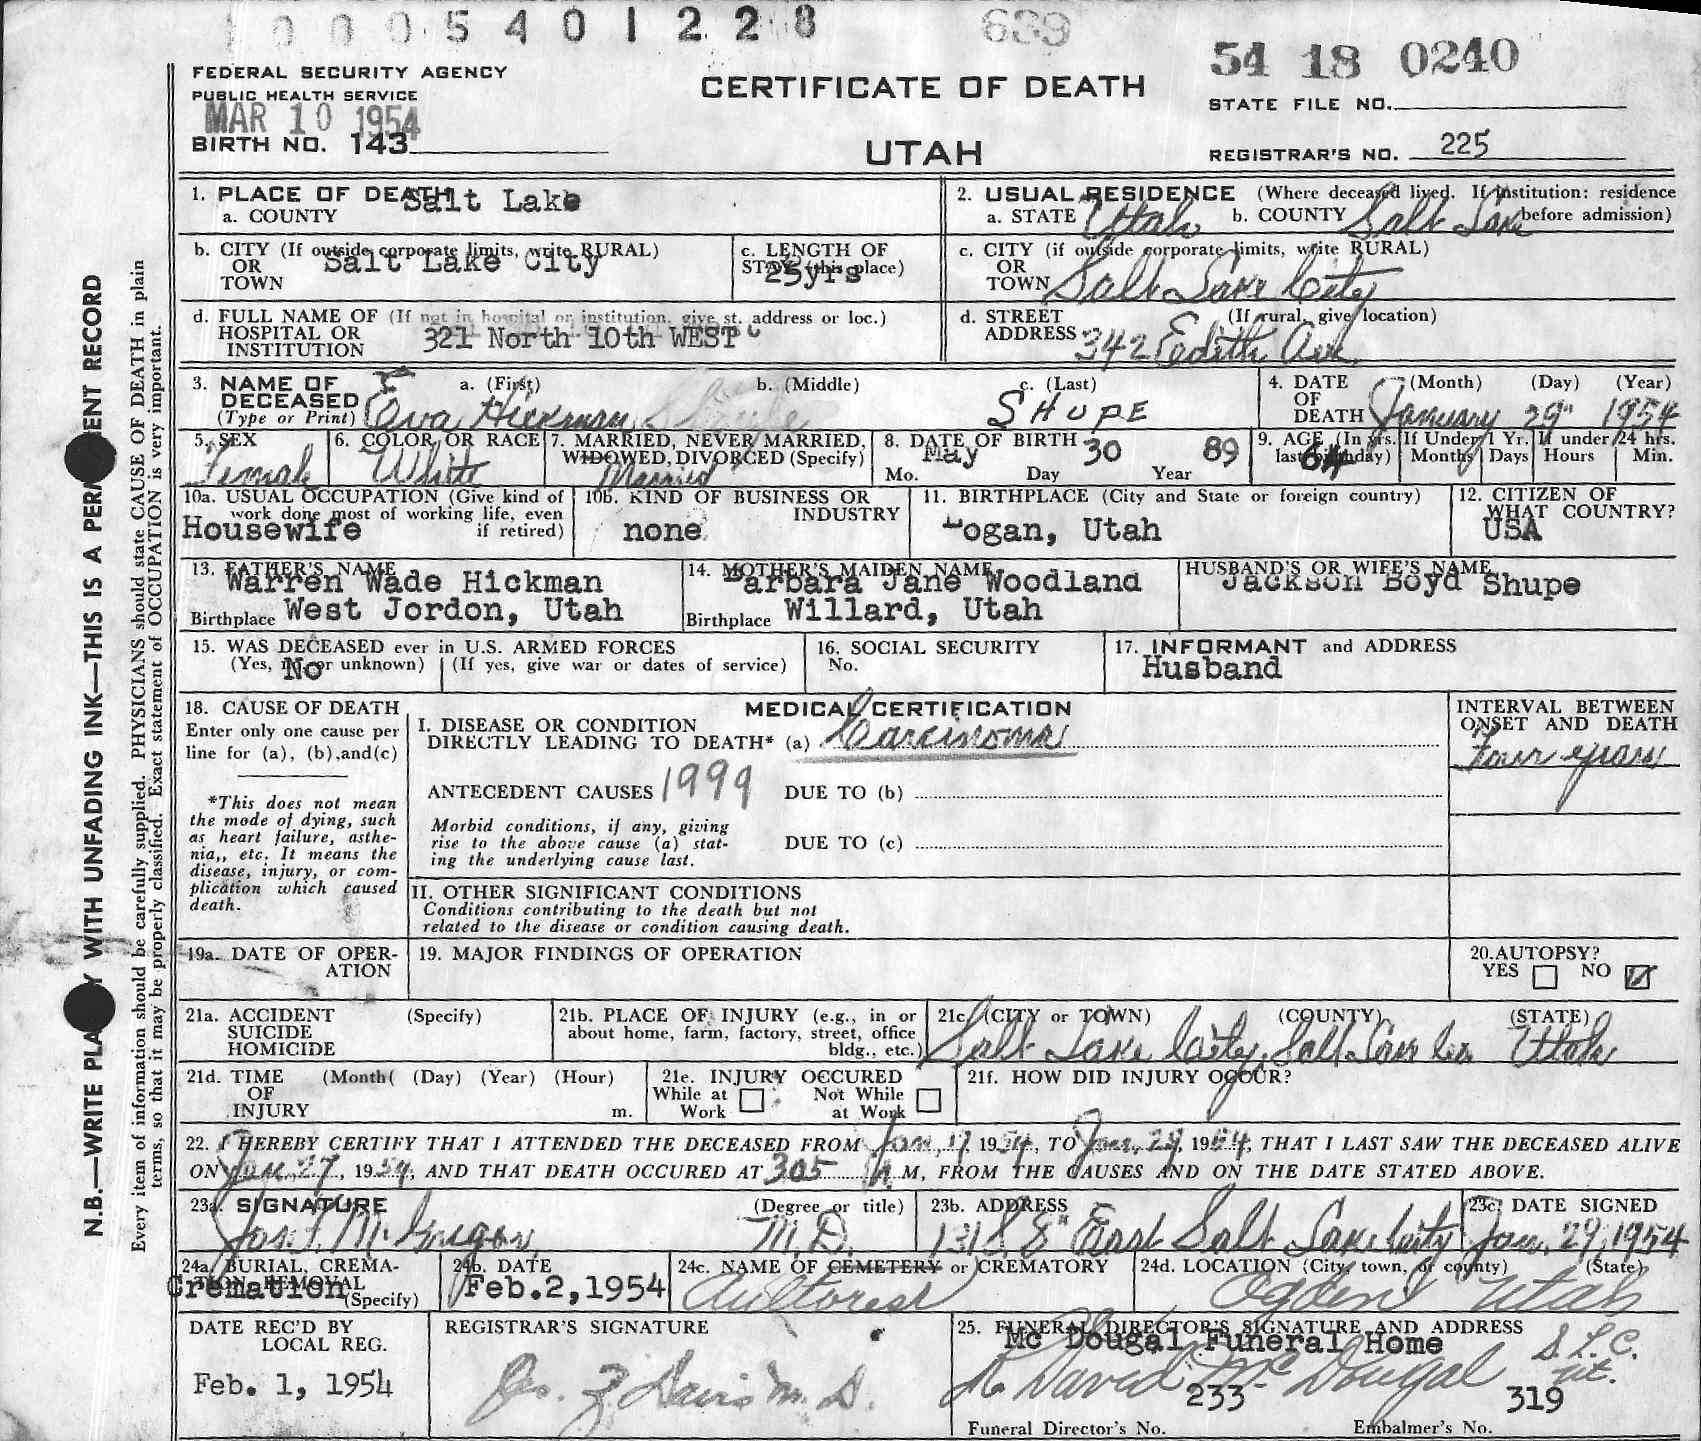 0 0 0 5 4 0 1 2 2 8 639
54 18 0240
FEDERAL SECURITY AGENCY
PUBLIC HEALTH SERVICE
MAR 10 1954
BIRTH NO. 143
CERTIFICATE OF DEATH
UTAH
STATE FILE NO.
REGISTRAR'S NO. 225
N.B.—WRITE PLA Y WITH UNFADING INK—THIS IS A PERM ENT RECORD
Every item of information should be carefully supplied. PHYSICIANS should state CAUSE OF DEATH in plain
terms, so that it may be properly classified. Exact statement of OCCUPATION is very important.
1. PLACE OF DEATH
a. COUNTY Salt Lake
2. USUAL RESIDENCE (Where deceased lived. If institution: residence
a. STATE Utah b. COUNTY Salt Lake before admission)
b. CITY (If outside corporate limits, write RURAL)
OR
TOWN Salt Lake City
c. LENGTH OF
STAY (this place) 25yrs
c. CITY (if outside corporate limits, write RURAL)
OR
TOWN Salt Lake City
d. FULL NAME OF (If not in hospital or institution, give st. address or loc.)
HOSPITAL OR
INSTITUTION 321 North 10th WEST
d. STREET (If rural, give location)
ADDRESS 342 Edith Ave.
3. NAME OF a. (First) b. (Middle) c. (Last)
DECEASED
(Type or Print) Eva Hickman SHUPE
4. DATE (Month) (Day) (Year)
OF
DEATH January 29" 1954
5. SEX
Female
6. COLOR OR RACE
White
7. MARRIED, NEVER MARRIED,
WIDOWED, DIVORCED (Specify)
Married
8. DATE OF BIRTH
May 30 89
Mo. Day Year
9. AGE (In yrs. If Under 1 Yr. If under 24 hrs.
last birthday) 64 Months Days Hours Min.
10a. USUAL OCCUPATION (Give kind of
work done most of working life, even
if retired)
Housewife
10b. KIND OF BUSINESS OR
INDUSTRY
none
11. BIRTHPLACE (City and State or foreign country)
Logan, Utah
12. CITIZEN OF
WHAT COUNTRY?
USA
13. FATHER'S NAME
Warren Wade Hickman
Birthplace West Jordon, Utah
14. MOTHER'S MAIDEN NAME
Barbara Jane Woodland
Birthplace Willard, Utah
HUSBAND'S OR WIFE'S NAME
Jackson Boyd Shupe
15. WAS DECEASED ever in U.S. ARMED FORCES
(Yes, no, or unknown) (If yes, give war or dates of service)
No
16. SOCIAL SECURITY
No.
17. INFORMANT and ADDRESS
Husband
18. CAUSE OF DEATH
Enter only one cause per
line for (a), (b),and(c)
*This does not mean
the mode of dying, such
as heart failure, asthe-
nia,, etc. It means the
disease, injury, or com-
plication which caused
death.
MEDICAL CERTIFICATION
I. DISEASE OR CONDITION
DIRECTLY LEADING TO DEATH* (a) Carcinoma
ANTECEDENT CAUSES 1999 DUE TO (b)
Morbid conditions, if any, giving
rise to the above cause (a) stat-
ing the underlying cause last.
DUE TO (c)
II. OTHER SIGNIFICANT CONDITIONS
Conditions contributing to the death but not
related to the disease or condition causing death.
INTERVAL BETWEEN
ONSET AND DEATH
Four years
19a. DATE OF OPER-
ATION
19. MAJOR FINDINGS OF OPERATION
20. AUTOPSY?
YES NO
21a. ACCIDENT (Specify)
SUICIDE
HOMICIDE
21b. PLACE OF INJURY (e.g., in or
about home, farm, factory, street, office
bldg., etc.)
21c. (CITY or TOWN) (COUNTY) (STATE)
Salt Lake City, Salt Lake Co Utah
21d. TIME (Month( (Day) (Year) (Hour)
OF
INJURY m.
21e. INJURY OCCURED
While at Not While
Work at Work
21f. HOW DID INJURY OCCUR?
22. I HEREBY CERTIFY THAT I ATTENDED THE DECEASED FROM Jan. 17, 1954, TO Jan. 29, 1954, THAT I LAST SAW THE DECEASED ALIVE
ON Jan. 27, 1954, AND THAT DEATH OCCURED AT 305 A M, FROM THE CAUSES AND ON THE DATE STATED ABOVE.
23a. SIGNATURE (Degree or title)
M.D.
23b. ADDRESS
131 S. 8" East Salt Lake City
23c. DATE SIGNED
Jan. 29, 1954
24a. BURIAL, CREMA-
TION, REMOVAL
(Specify)
Cremation
24b. DATE
Feb.2,1954
24c. NAME OF CEMETERY or CREMATORY
Aultorest
24d. LOCATION (City, town, or county) (State)
Ogden, Utah
DATE REC'D BY
LOCAL REG.
Feb. 1, 1954
REGISTRAR'S SIGNATURE
Jos. Z Davis M. D.
25. FUNERAL DIRECTOR'S SIGNATURE AND ADDRESS
Mc Dougal Funeral Home S.L.C.
David Mc Dougal Ut.
233 319
Funeral Director's No. Embalmer's No.